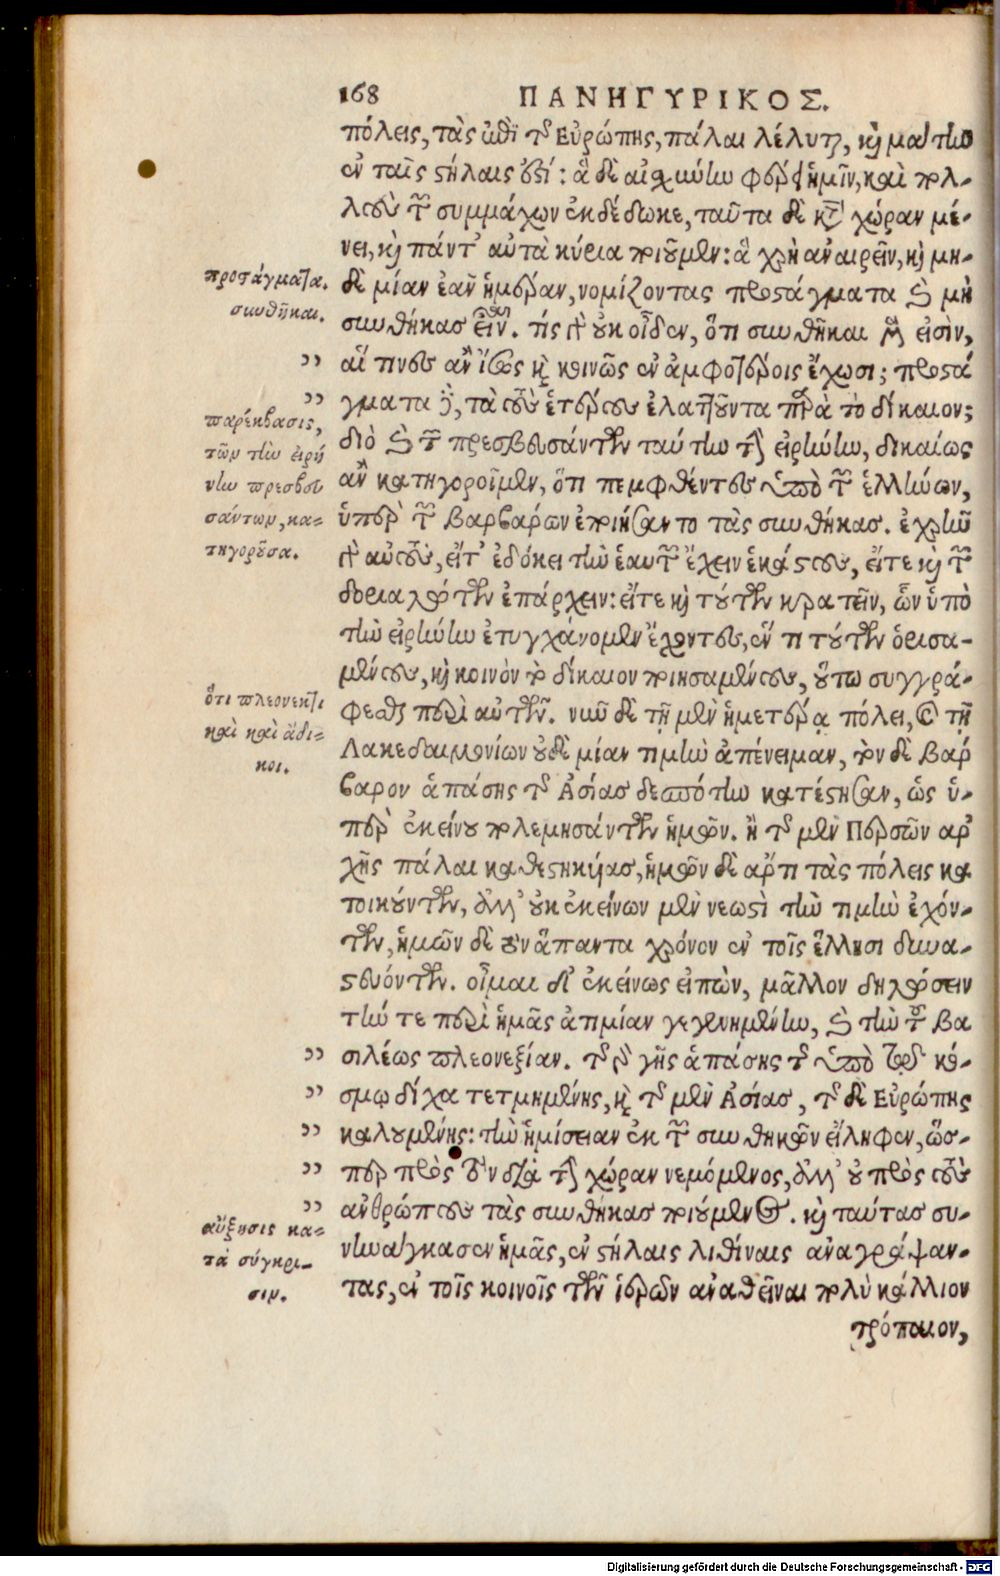 168 ΠΑΝΗΓΥΡΙΚΟΣ.
πόλεις, τὰς ἐπὶ τῆς Εὐρώπης, πάλαι λέλυται, καὶ μάτην
ἐν ταῖς στήλαις ἐστί: ἃ δὲ αἰσχύνην φέρει ἡμῖν, καὶ πολ-
λοὺς τῶν συμμάχων ἐκδέδωκε, ταῦτα δὲ κατὰ χώραν μέ-
νει, καὶ πάντ' αὐτὰ κύρια ποιοῦμεν: ἃ χρὴ ἀναιρεῖν, καὶ μη-
δὲ μίαν ἐᾶν ἡμέραν, νομίζοντας προστάγματα καὶ μὴ
συνθήκας εἶναι. τίς γὰρ οὐκ οἶδεν, ὅτι συνθῆκαι μέν εἰσὶν,
αἵ τινες ἂν ἴσως καὶ κοινῶς ἐν ἀμφοτέροις ἔχωσι; προστά
γματα δὲ, τὰ τοὺς ἑτέρους ἐλαττοῦντα παρὰ τὸ δίκαιον;
διὸ καὶ τῶν πρεσβευσάντων ταύτην τὴν εἰρήνην, δικαίως
ἂν κατηγοροῖμεν, ὅτι πεμφθέντες ὑπὸ τῶν ἑλλήνων,
ὑπὲρ τῶν βαρβάρων ἐποιήσαντο τὰς συνθήκας. ἐχρῆν
γὰρ αὐτοὺς, εἴτ' ἐδόκει τὴν ἑαυτῶν ἔχειν ἑκάστους, εἴτε καὶ τῶν
δοριαλώτων ἐπάρχειν: εἴτε καὶ τούτων κρατεῖν, ὧν ὑπὸ
τὴν εἰρήνην ἐτυγχάνομεν ἔχοντες, ἕν τι τούτων ὁρισα-
μένους, καὶ κοινὸν τὸ δίκαιον ποιησαμένους, οὕτω συγγρά-
φεσθαι περὶ αὐτῶν. νῦν δὲ τῇ μὲν ἡμετέρᾳ πόλει, καὶ τῇ
Λακεδαιμονίων οὐδὲ μίαν τιμὴν ἀπένειμαν, τὸν δὲ βάρ
βαρον ἁπάσης τῆς Ἀσίας δεσπότην κατέστησαν, ὡς ὑ-
πὲρ ἐκείνου πολεμησάντων ἡμῶν. ἢ τῆς μὲν Περσῶν ἀρ
χῆς πάλαι καθεστηκυίας, ἡμῶν δὲ ἄρτι τὰς πόλεις κα
τοικούντων, ἀλλ' οὐκ ἐκείνων μὲν νεωστὶ τὴν τιμὴν ἐχόν-
των, ἡμῶν δὲ τὸν ἅπαντα χρόνον ἐν τοῖς ἕλλησι δυνα-
στευόντων. οἶμαι δ' ἐκείνως εἰπὼν, μᾶλλον δηλώσειν
τήν τε περὶ ἡμᾶς ἀτιμίαν γεγενημένην, καὶ τὴν τοῦ βα
σιλέως πλεονεξίαν. τῆς γὰρ γῆς ἁπάσης τῆς ὑπὸ τῷ κό-
σμῳ δίχα τετμημένης, καὶ τῆς μὲν Ἀσίας, τῆς δὲ Εὐρώπης
καλουμένης: τὴν ἡμίσειαν ἐκ τῶν συνθηκῶν εἴληφεν, ὥσ-
περ πρὸς τὸν δία τὴν χώραν νεμόμενος, ἀλλ' οὐ πρὸς τοὺς
ἀνθρώπους τὰς συνθήκας ποιούμενος. καὶ ταύτας συ-
νηνάγκασεν ἡμᾶς, ἐν στήλαις λιθίναις ἀναγράψαν-
τας, ἐν τοῖς κοινοῖς τῶν ἱερῶν ἀναθεῖναι πολὺ κάλλιον
τρόπαιον,
προστάγματα.
συνθῆκαι.
παρέκβασις,
τῶν τὴν εἰρή
νην πρεσβευ
σάντων, κα-
τηγοροῦσα.
ὅτι πλεονέκται
καὶ καὶ ἄδι-
κοι.
αὔξησις κα-
τὰ σύγκρι-
σιν.
Digitalisierung gefördert durch die Deutsche Forschungsgemeinschaft - DFG